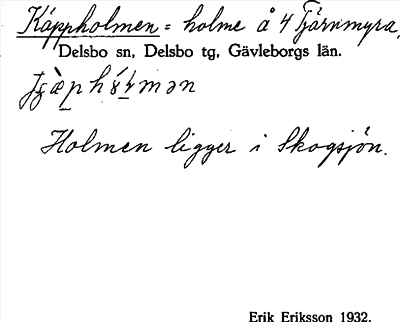 Käppholmen = holme å 4 Tjärnmyra,
Delsbo sn, Delsbo tg, Gävleborgs län.
Holmen ligger i Skogsjön.
Erik Eriksson 1932.